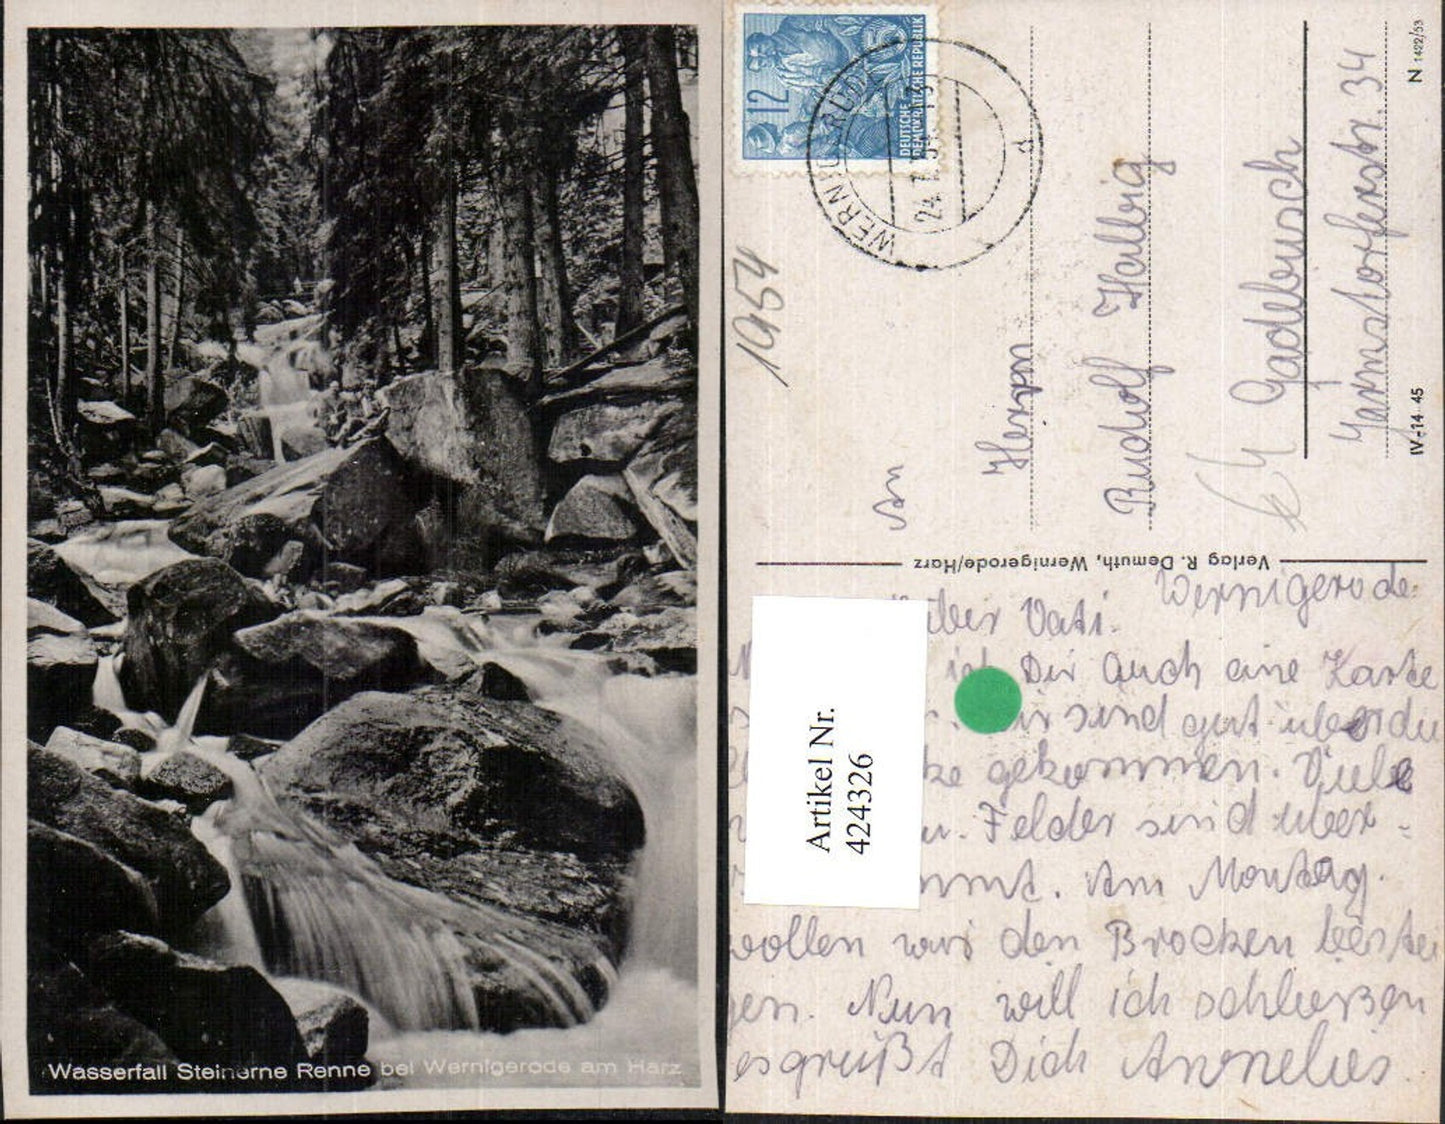 Wasserfall Steinerne Renne bei Wernigerode am Harz
12
15
DEUTSCHE
DEMOKRATISCHE REPUBLIK
WERNIGERODE
24.7.54
d
1954
An
Herrn
Rudolf Halbig
Gadebusch
Jarmstorferstr. 34
N 1422/53
IV-14-45
Verlag R. Demuth, Wernigerode/Harz
Artikel Nr.
424326
Wernigerode
Vati.
ich Dir Auch eine Karte
sind gut über die
gekommen. Viele
Felder sind über=
Am Montag
wollen wir den Brocken bestei
gen. Nun will ich schließen
es grüßt Dich Annelies.